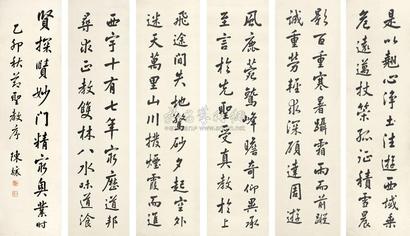 是以翹心淨土法遊西域乘
危遠邁杖策孤征積雪晨
飛途間失地驚砂夕起空外
迷天萬里山川撥煙霞而進
影百重寒暑躡霜雨而前蹤
誠重勞輕求深願達周遊
西宇十有七年窮歷道邦
尋求正教雙林八水味道飡
風鹿菀鷲峰瞻奇仰異承
至言於先聖受真教於上
賢探賾妙門精窮奧業時
乙卯秋節聖教序 陳